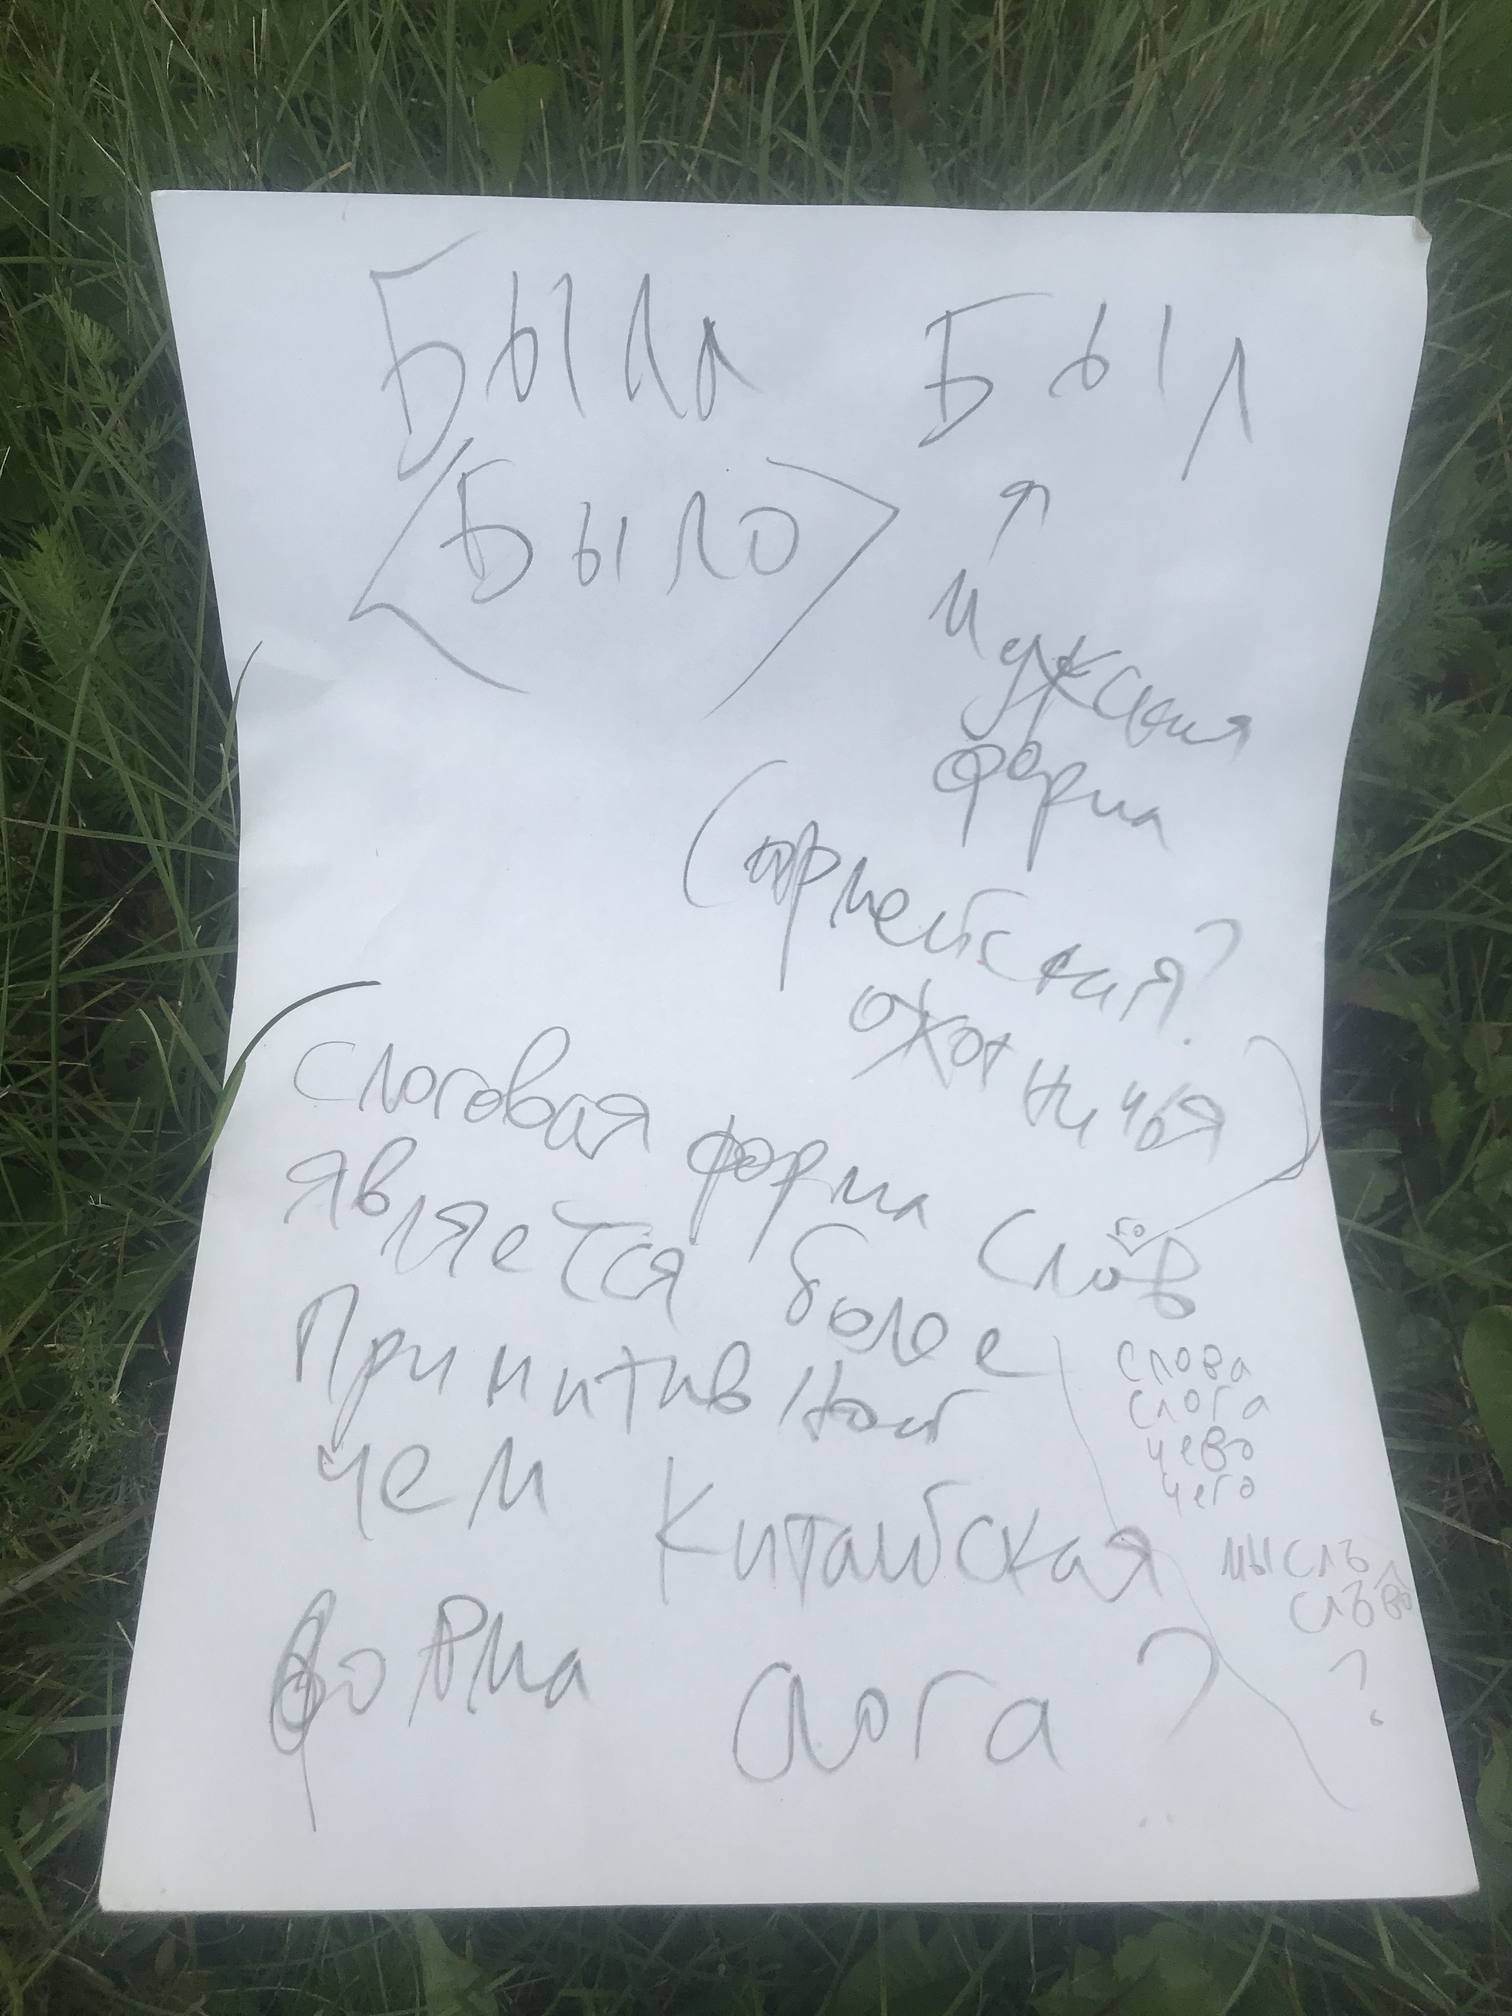 Была Был
Было
↑
Мужская
форма
(армейская?
охотничья)
Слоговая форма слов
го
является более
Примитивной
чем Китайская
форма слога?
слова
слога
чево
чего
мысль
слъво
?